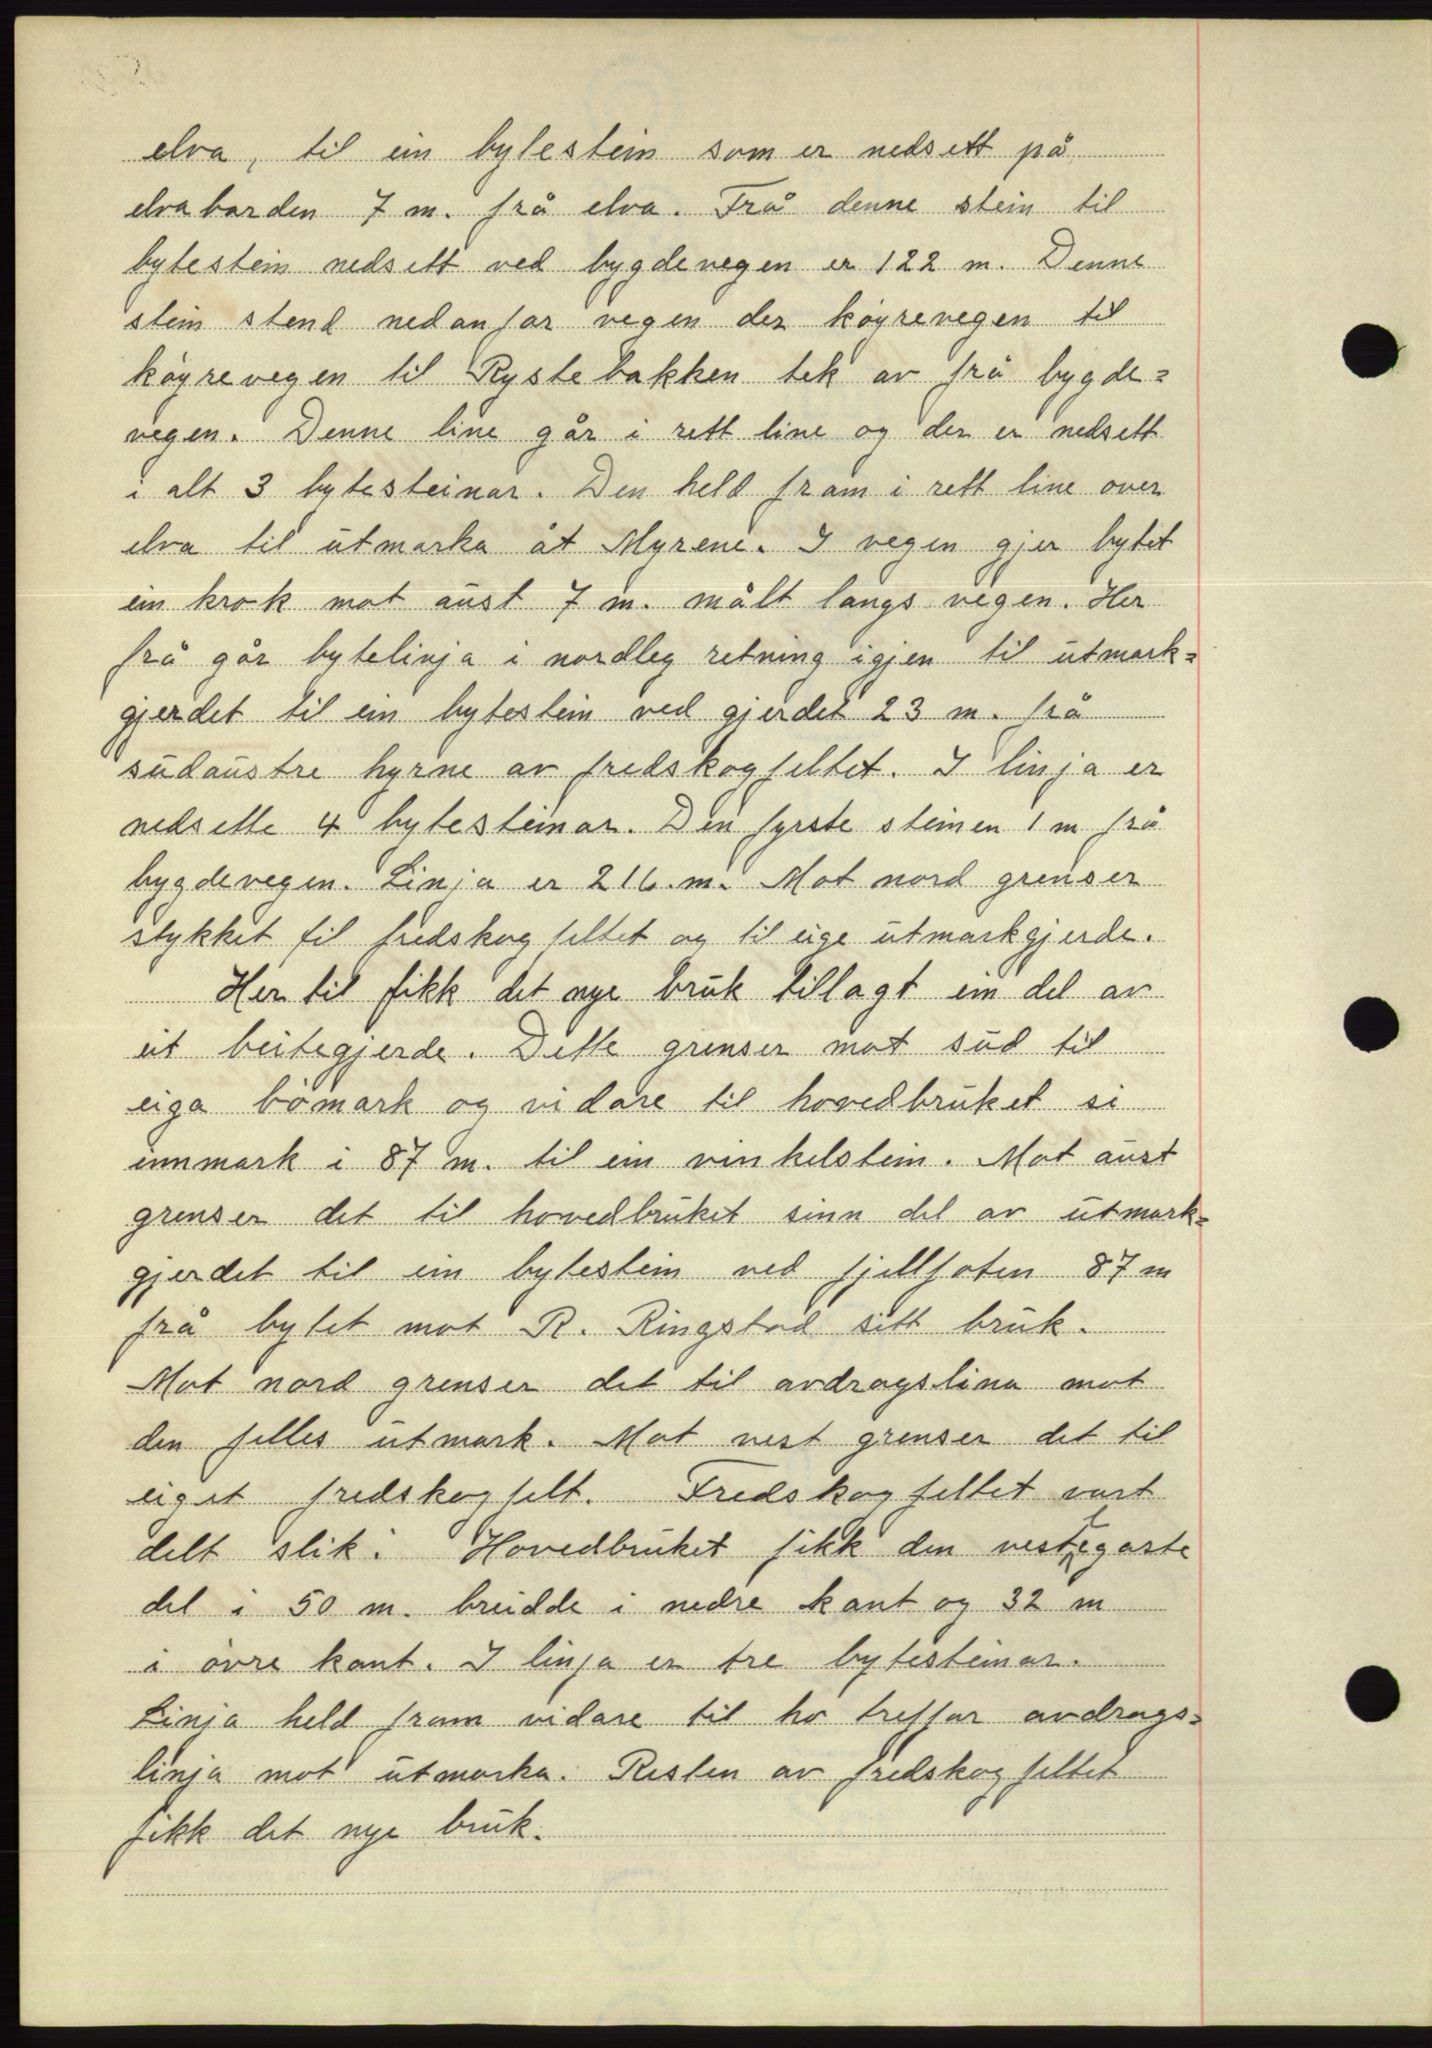 elva, til ein bytestein som er nedsett på
elvabarden 7 m. frå elva. Frå denne stein til
bytestein nedsett ved bygdevegen er 122 m. Denne
stein stend nedanfor vegen der köyrevegen til
köyrevegen til Rystebakken tek av frå bygde=
vegen. Denne line går i rett line og der er nedsett
i alt 3 bytesteinar. Den held fram i rett line over
elva til utmarka åt Myrene. I vegen gjer bytet
ein krok mot aust 7 m. målt langs vegen. Her
frå går bytelinja i nordleg retning igjen til utmark=
gjerdet til ein bytestein ved gjerdet 23 m. frå
südaustre hyrne av fredskogfeltet. I linja er
nedsette 4 bytesteinar. Den fyrste steinen 1 m frå
bygdevegen. Linja er 216.m. Mot nord grenser
stykket til fredskogfeltet og til eige utmarkgjerde.
Her til fikk det nye bruk tillagt ein del av
eit beitegjerde. Dette grenser mot süd til
eiga bömark og vidare til hovedbruket si
innmark i 87 m. til ein vinkelstein. Mot aust
grenser det til hovedbruket sinn del av utmark=
gjerdet til ein bytestein ved fjellfoten 87 m
frå bytet mot R. Ringstad sitt bruk.
Mot nord grenser det til avdragslina mot
den felles utmark. Mot vest grenser det til
eiget fredskogfelt. Fredskogfeltet vart
delt slik: Hovedbruket fikk den vestlegaste
del i 50 m. breidde i nedre kant og 32 m
i övre kant. I linja er tre bytesteinar.
Linja held fram vidare til ho treffar avdrags=
linja mot utmarka. Resten av fredskogfeltet
fikk det nye bruk.